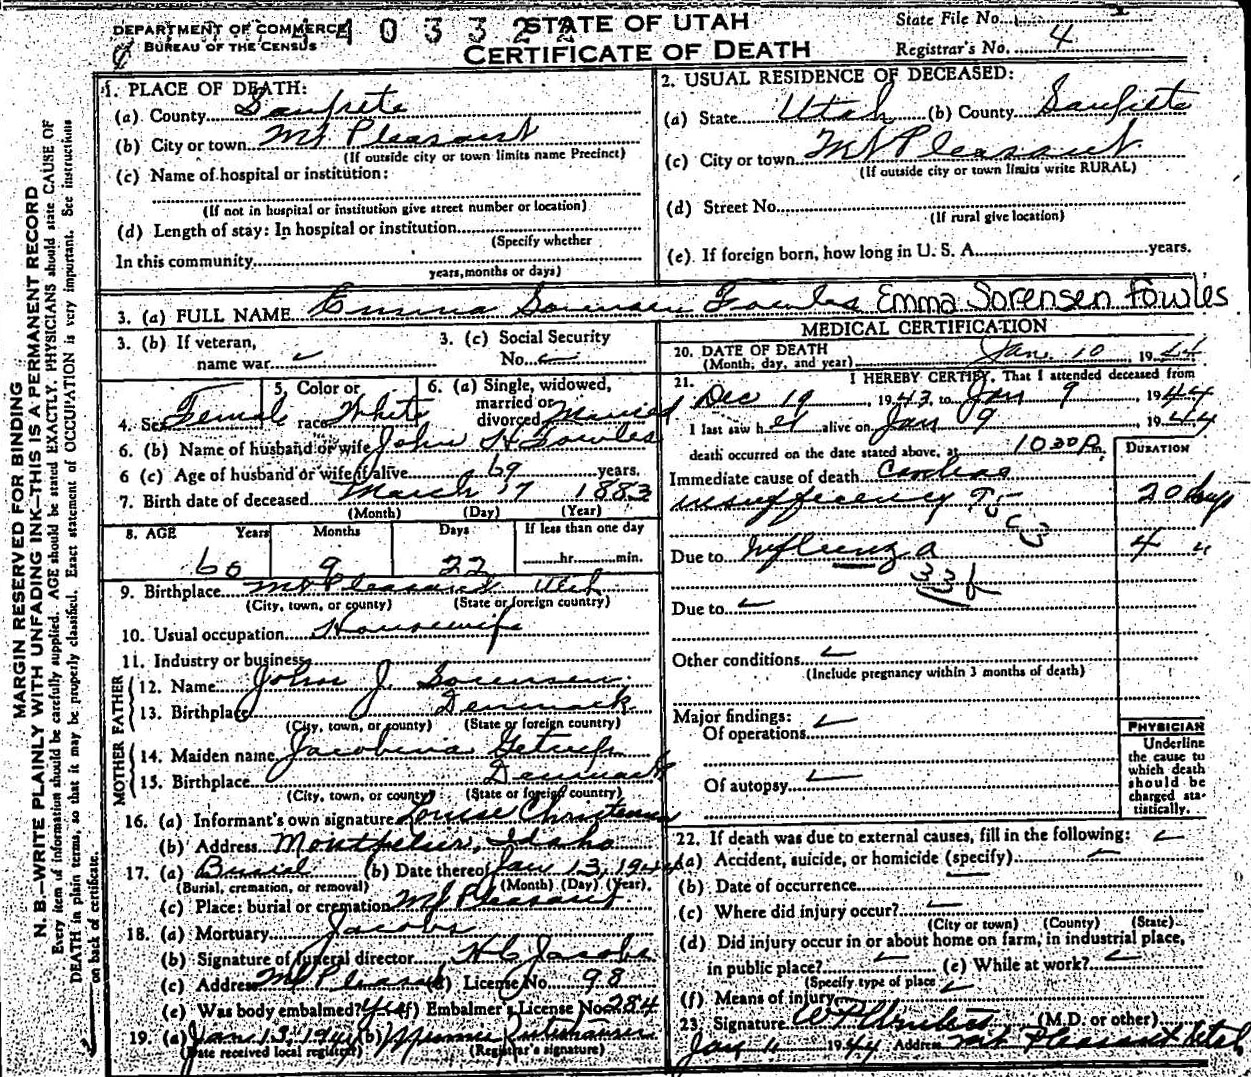 DEPARTMENT OF COMMERCE
BUREAU OF THE CENSUS
4 0 3 3 2 2
STATE OF UTAH
CERTIFICATE OF DEATH
State File No.
Registrar's No. 4
MARGIN RESERVED FOR BINDING
N. B.—WRITE PLAINLY WITH UNFADING INK—THIS IS A PERMANENT RECORD
Every item of information should be carefully supplied. AGE should be stated EXACTLY. PHYSICIANS should state CAUSE OF
DEATH in plain terms, so that it may be properly classified. Exact statement of OCCUPATION is very important. See instructions
on back of certificate.
1. PLACE OF DEATH:
(a) County Sanpete
(b) City or town Mt Pleasant
(If outside city or town limits name Precinct)
(c) Name of hospital or institution:
(If not in hospital or institution give street number or location)
(d) Length of stay: In hospital or institution
(Specify whether
In this community
years, months or days)
2. USUAL RESIDENCE OF DECEASED:
(a) State Utah (b) County Sanpete
(c) City or town Mt Pleasant
(If outside city or town limits write RURAL)
(d) Street No.
(If rural give location)
(e) If foreign born, how long in U. S. A. years.
3. (a) FULL NAME Emma Sorensen Fowles Emma Sorensen Fowles
3. (b) If veteran,
name war
3. (c) Social Security
No.
4. Sex Female
5. Color or
race White
6. (a) Single, widowed,
married or
divorced Married
6. (b) Name of husband or wife John H Fowles
6 (c) Age of husband or wife if alive 69 years.
7. Birth date of deceased March 17 1883
(Month) (Day) (Year)
8. AGE Years Months Days If less than one day
60 9 22 hr. min.
9. Birthplace Mt Pleasant Utah
(City, town, or county) (State or foreign country)
10. Usual occupation Housewife
11. Industry or business
FATHER
12. Name John J. Sorensen
13. Birthplace Denmark
(City, town, or county) (State or foreign country)
MOTHER
14. Maiden name Jacobina
15. Birthplace Denmark
(City, town, or county) (State or foreign country)
16. (a) Informant's own signature Louise Christensen
(b) Address Montpelier, Idaho
17. (a) Burial (b) Date thereof Jan 13, 1944
(Burial, cremation, or removal) (Month) (Day) (Year)
(c) Place: burial or cremation Mt Pleasant
18. (a) Mortuary Jacobs
(b) Signature of funeral director H C Jacobs
(c) Address Mt Pleasant (d) License No. 98
(e) Was body embalmed? yes (f) Embalmer's License No. 284
19. (a) Jan. 13, 1944 (b)
(Date received local registrar) (Registrar's signature)
MEDICAL CERTIFICATION
20. DATE OF DEATH
(Month, day, and year) Jan. 10, 1944
21. I HEREBY CERTIFY, That I attended deceased from
Dec 19, 1943, to Jan 9, 1944
I last saw her alive on Jan 9, 1944
death occurred on the date stated above, at 10 30 P m.
DURATION
Immediate cause of death Cardiac
insufficiency 20 Days
Due to Influenza 4 "
33b
Due to
Other conditions
(Include pregnancy within 3 months of death)
Major findings:
Of operations
Of autopsy
PHYSICIAN
Underline
the cause to
which death
should be
charged sta-
tistically.
22. If death was due to external causes, fill in the following:
(a) Accident, suicide, or homicide (specify)
(b) Date of occurrence
(c) Where did injury occur?
(City or town) (County) (State)
(d) Did injury occur in or about home on farm, in industrial place,
in public place? (e) While at work?
(Specify type of place)
(f) Means of injury
23. Signature (M.D. or other)
Jan 11 1944 Address Mt Pleasant Utah